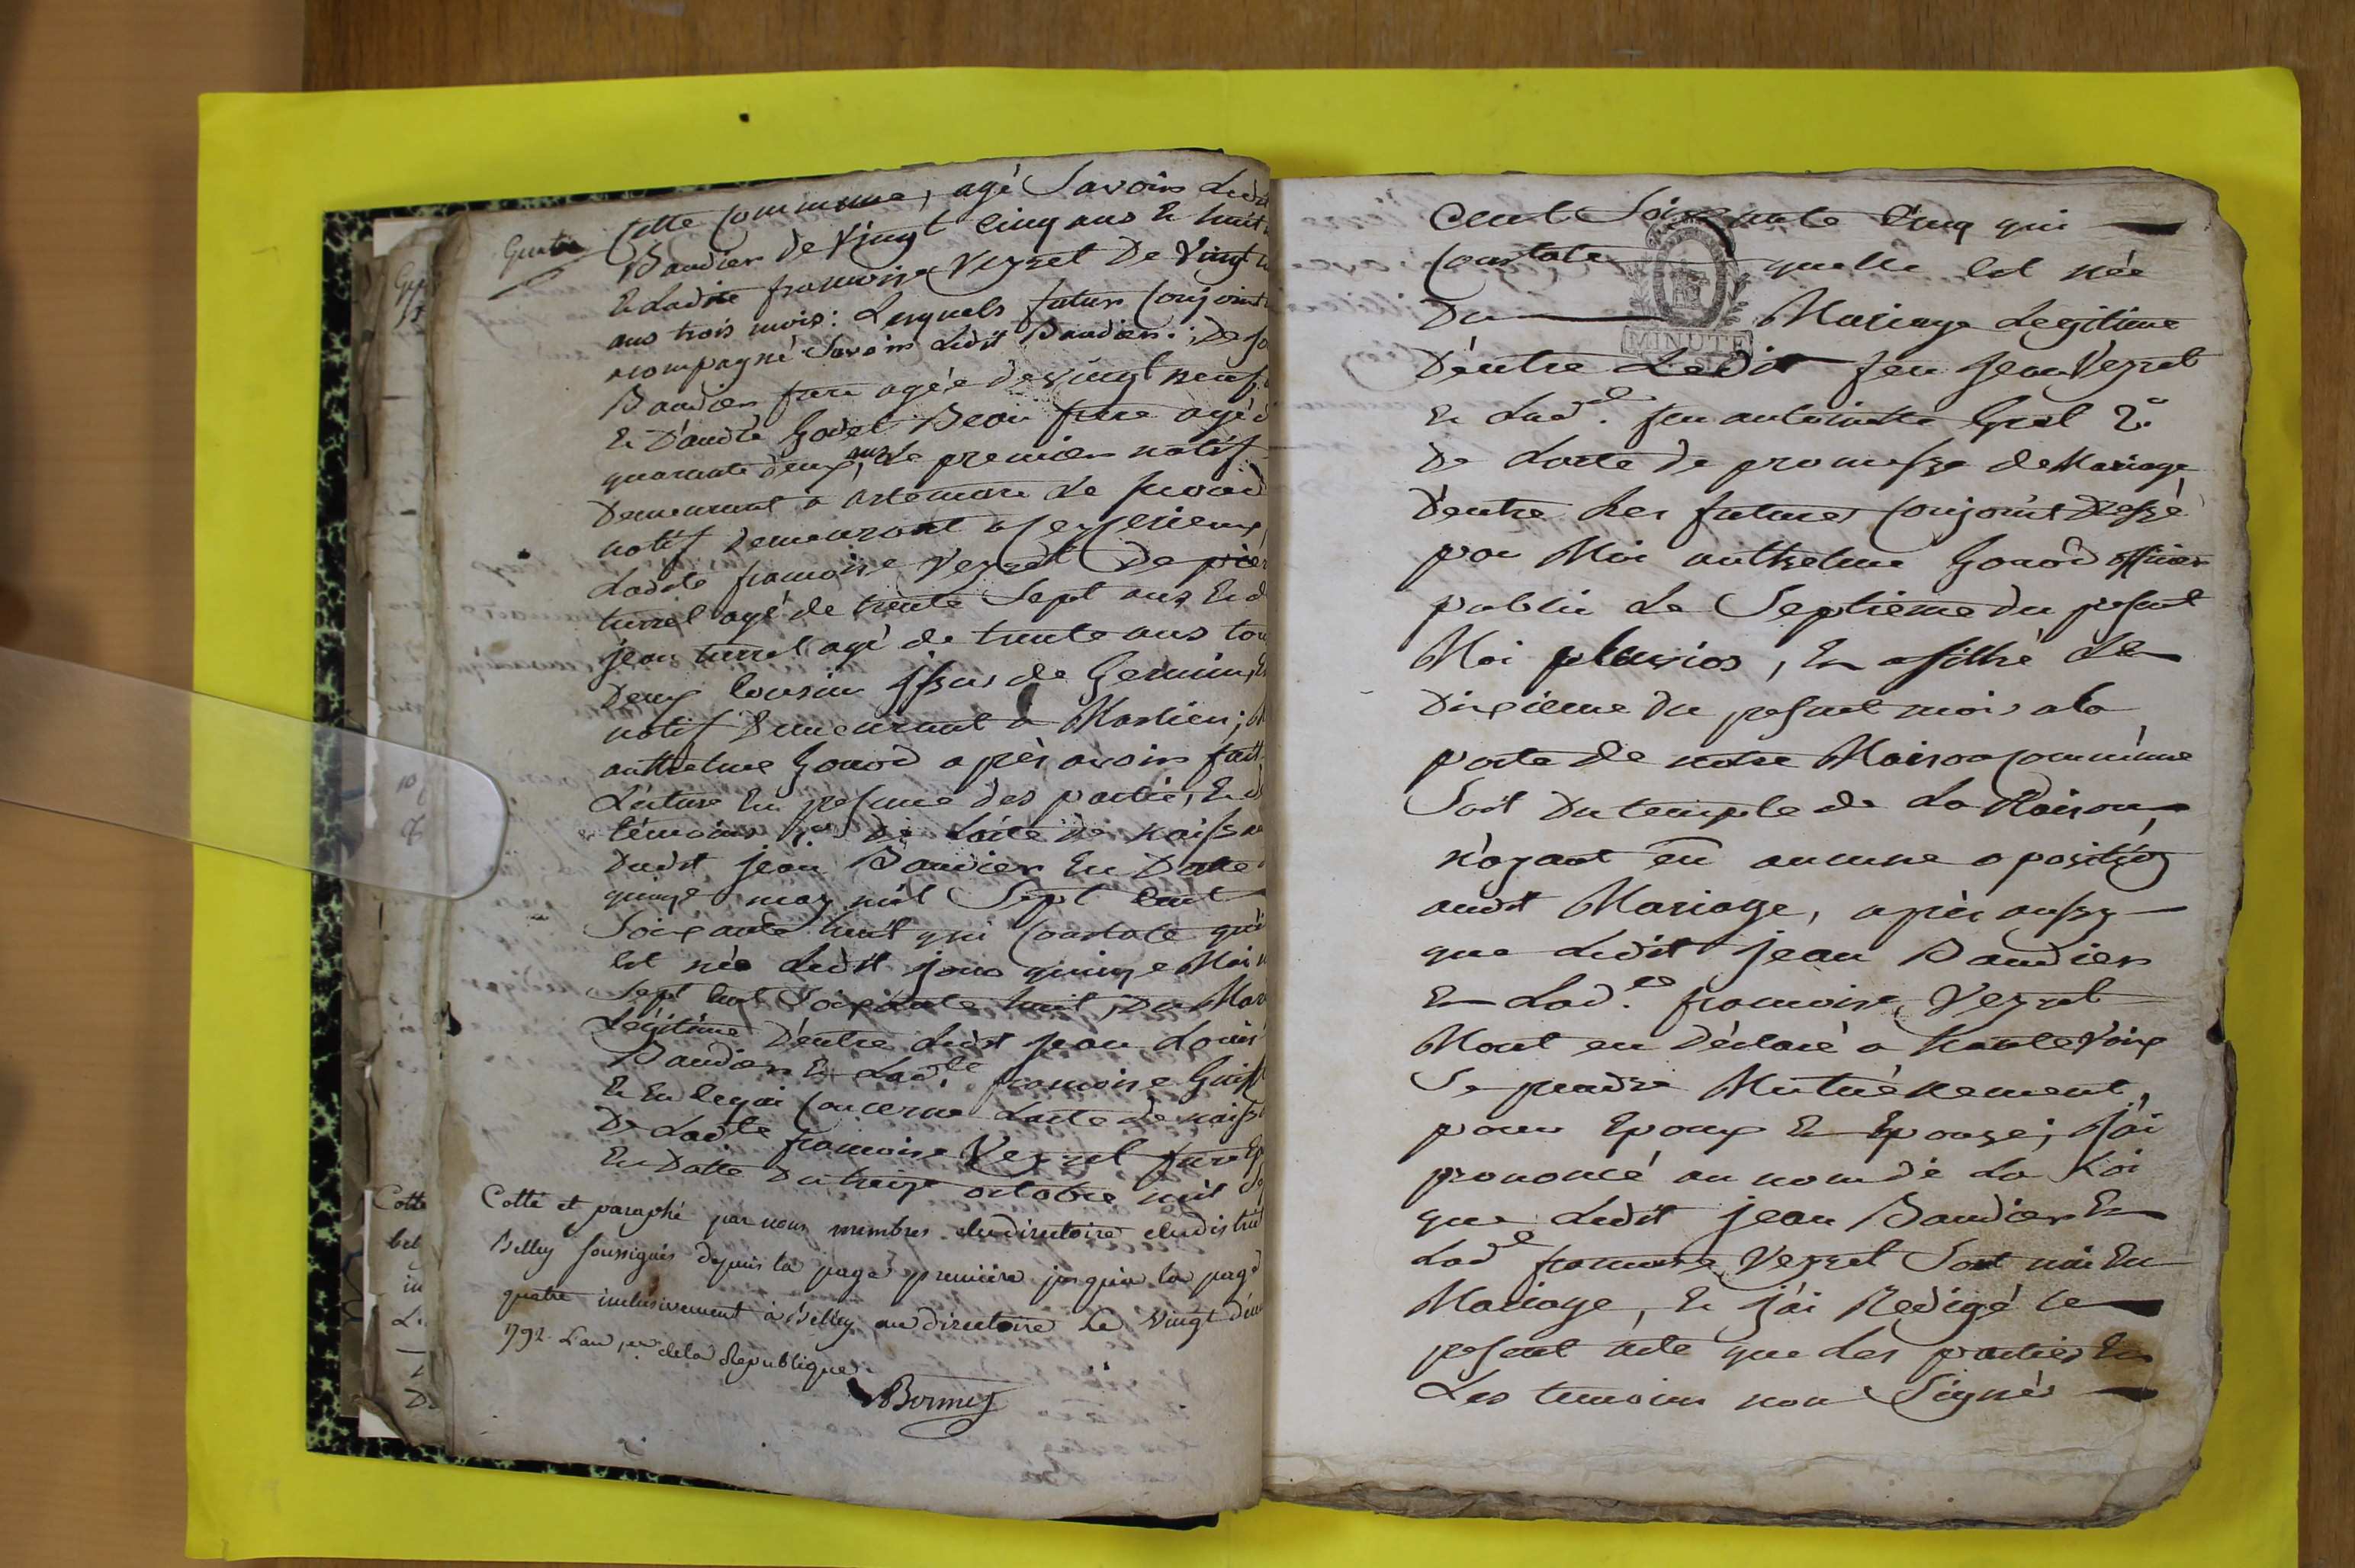 quatre
Cette Commune, agé Savoir Ledit
Baudier de Vingt Cinq ans Et huit
Et Ladite francoise Vezret De Vingt
ans trois mois: Lesquels futurs Conjoints
acompagné Savoir Ledit Baudier: De
Baudier frere agée de vingt neuf
Et D'andre Godet Beau frere agé
quarante deux ans, Le premier natif
Demeurant a artemare Le second
natif Demeurant a
Ladite francoise Vezret De pier
turrel agé de trente Sept ans Et d
jean turrel agé de trente ans tou
Deux Cousin issus de Germain, Et
natif Demeurant a Marlieu;
anthelme Gonod après avoir fait
Lecture En presence des partie, Et d
témoins 1° De Lacte de naissa
Dudit jean Baudier En Datte
quinze may mil Sept Cent
Soixante huit qui Constate qu'i
Est née Ledit jour quinze Mai
Sept Cent Soixante huit, Du Mar
Légitime D'entre Ledit jean Louis
Baudier Et Lad.te francoise
Et En ce qui Concerne Lacte de naiss
De Ladte francoise Vezret
En Datte Du treize octobre mil
Cotté et paraphé par nous membres du directoire du district
Belley soussignés depuis la page première jusqu'a la page
quatre inclusivement à Belley au directoire le vingt
1792. L'an 1er de la République.
Cent Soixante Cinq qui
Constate quelle Est née
Du Mariage Legitime
MINUTE
D'entre Ledit feu jean Vezret
Et Lad.e feu antoinette Grel 2°
De Lacte de promesse de Mariage
D'entre Les futures Conjoint Dressé
par Moi anthelme Gonod officier
public Le Septième du present
Moi pluvios, Et afiché Le
Dixieme du present mois a la
porte de notre Maison Commune
Soit Du temple de La Raison
n'ayant eu aucune oposition
audit Mariage, après aussy
que Ledit jean Baudier
Et Lad.te francoise Vezret
Mont eu Déclaré a haute Voix
Se prendre Mutuélement,
pour Epoux Et Epouze; J'ai
prononcé au nom de La Loi
que Ledit jean Baudier Et
Lade francoise Vezret Sont uni En
Mariage, Et j'ai Redigé le
present acte que Les parties Et
Les temoins non Signés